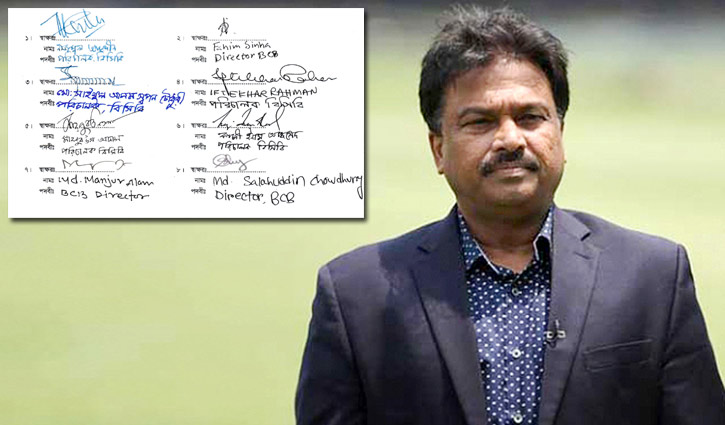 ১। স্বাক্ষরঃ
নামঃ
পদবীঃ পরিচালক, বিসিবি
২। স্বাক্ষরঃ
নামঃ Enim Sinha
পদবীঃ Director BCB
৩। স্বাক্ষরঃ
নামঃ মোঃ সাইফুল আলম স্বপন চৌধুরী
পদবীঃ পরিচালক, বিসিবি
৪। স্বাক্ষরঃ Iftekhar Rahman
নামঃ IFTEKHAR RAHMAN
পদবীঃ পরিচালক বিসিবি
৫। স্বাক্ষরঃ
নামঃ
পদবীঃ পরিচালক বিসিবি
৬। স্বাক্ষরঃ
নামঃ
পদবীঃ পরিচালক বিসিবি
৭। স্বাক্ষরঃ
নামঃ Md. Manjur Alam
পদবীঃ BCB Director
৮। স্বাক্ষরঃ
নামঃ Md. Salahuddin Chowdhury
পদবীঃ Director, BCB